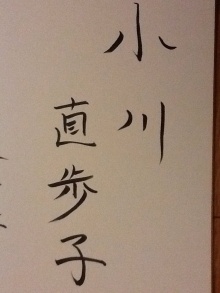 小川
直歩子